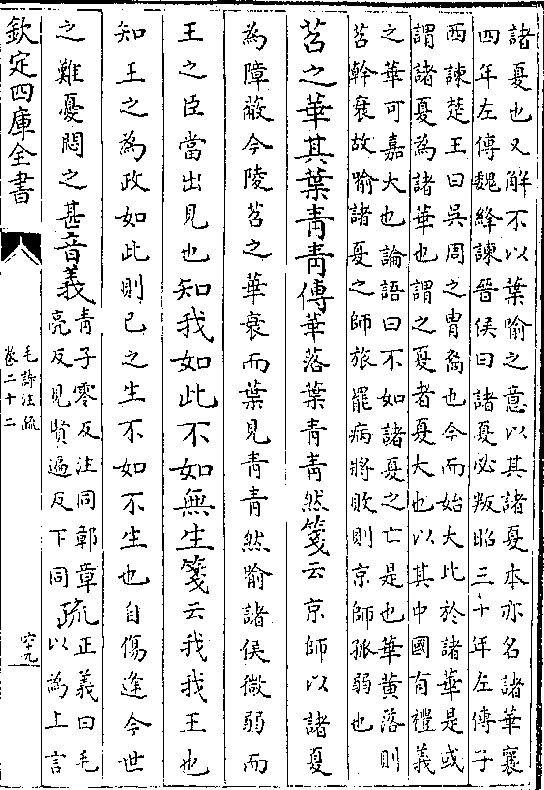 諸夏也又解不以葉喻之意以其諸夏本亦名諸華襄
四年左傳魏絳諫晉侯曰諸夏必叛昭三十年左傳子
西諫楚王曰吳周之胄裔也今而始大比於諸華是或
謂諸夏為諸華也謂之夏者夏大也以其中國有禮義
之華可嘉大也論語曰不如諸夏之亡是也華黄落則
苕幹衰故喻諸夏之師旅罷病將敗則京師孤弱也
苕之華其葉青青傳華落葉青青然箋云京師以諸夏
為障蔽今陵苕之華衰而葉見青青然喻諸侯微弱而
王之臣當出見也知我如此不如無生箋云我我王也
知王之為政如此則已之生不如不生也自傷逢今世
之難憂悶之甚音義青子零反注同鄣章
亮反見賢遍反下同疏正義曰毛
以為上言
欽定四庫全書
毛詩注疏
卷二十二
六十九